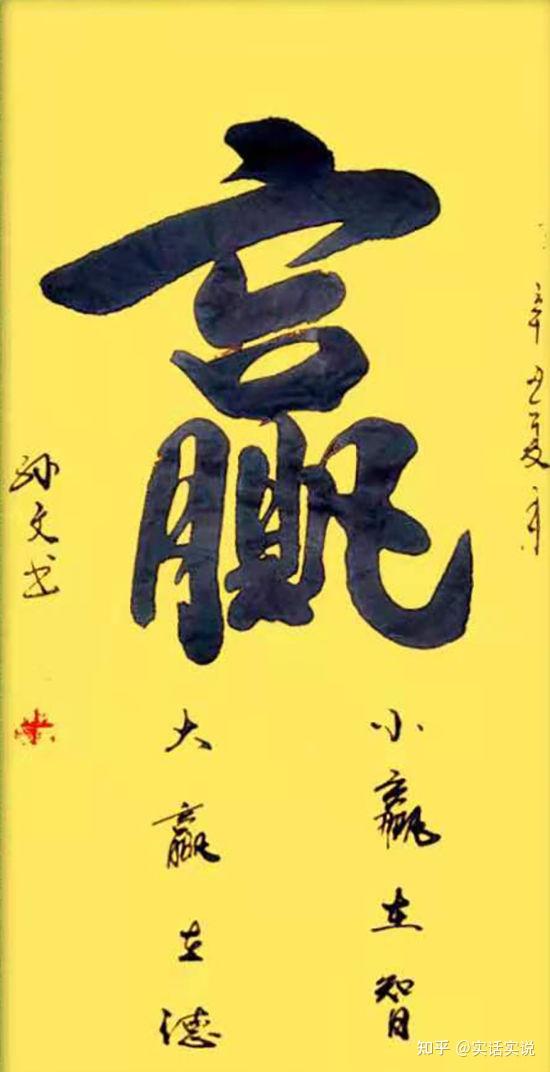 赢
辛丑夏月
小赢在智
大赢在德
孙文书
知乎 @实话实说